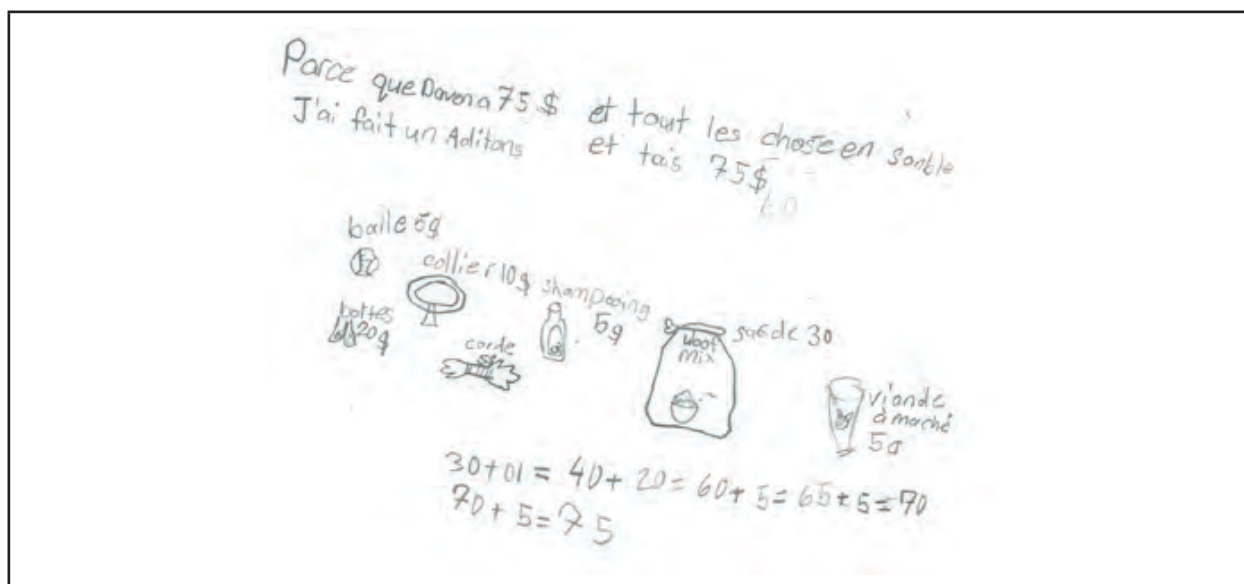 Parce que Daven a 75 $ et tout les chose en sanble
J'ai fait un Aditons et tais 75 $
baile 5$
collier 10$
shampooing
5$
bottes
20$
corde
5$
woof
mix
sac de 30
viande
à maché
5$
30+01 = 40+ 20= 60+ 5= 65+ 5= 70
70+ 5= 75